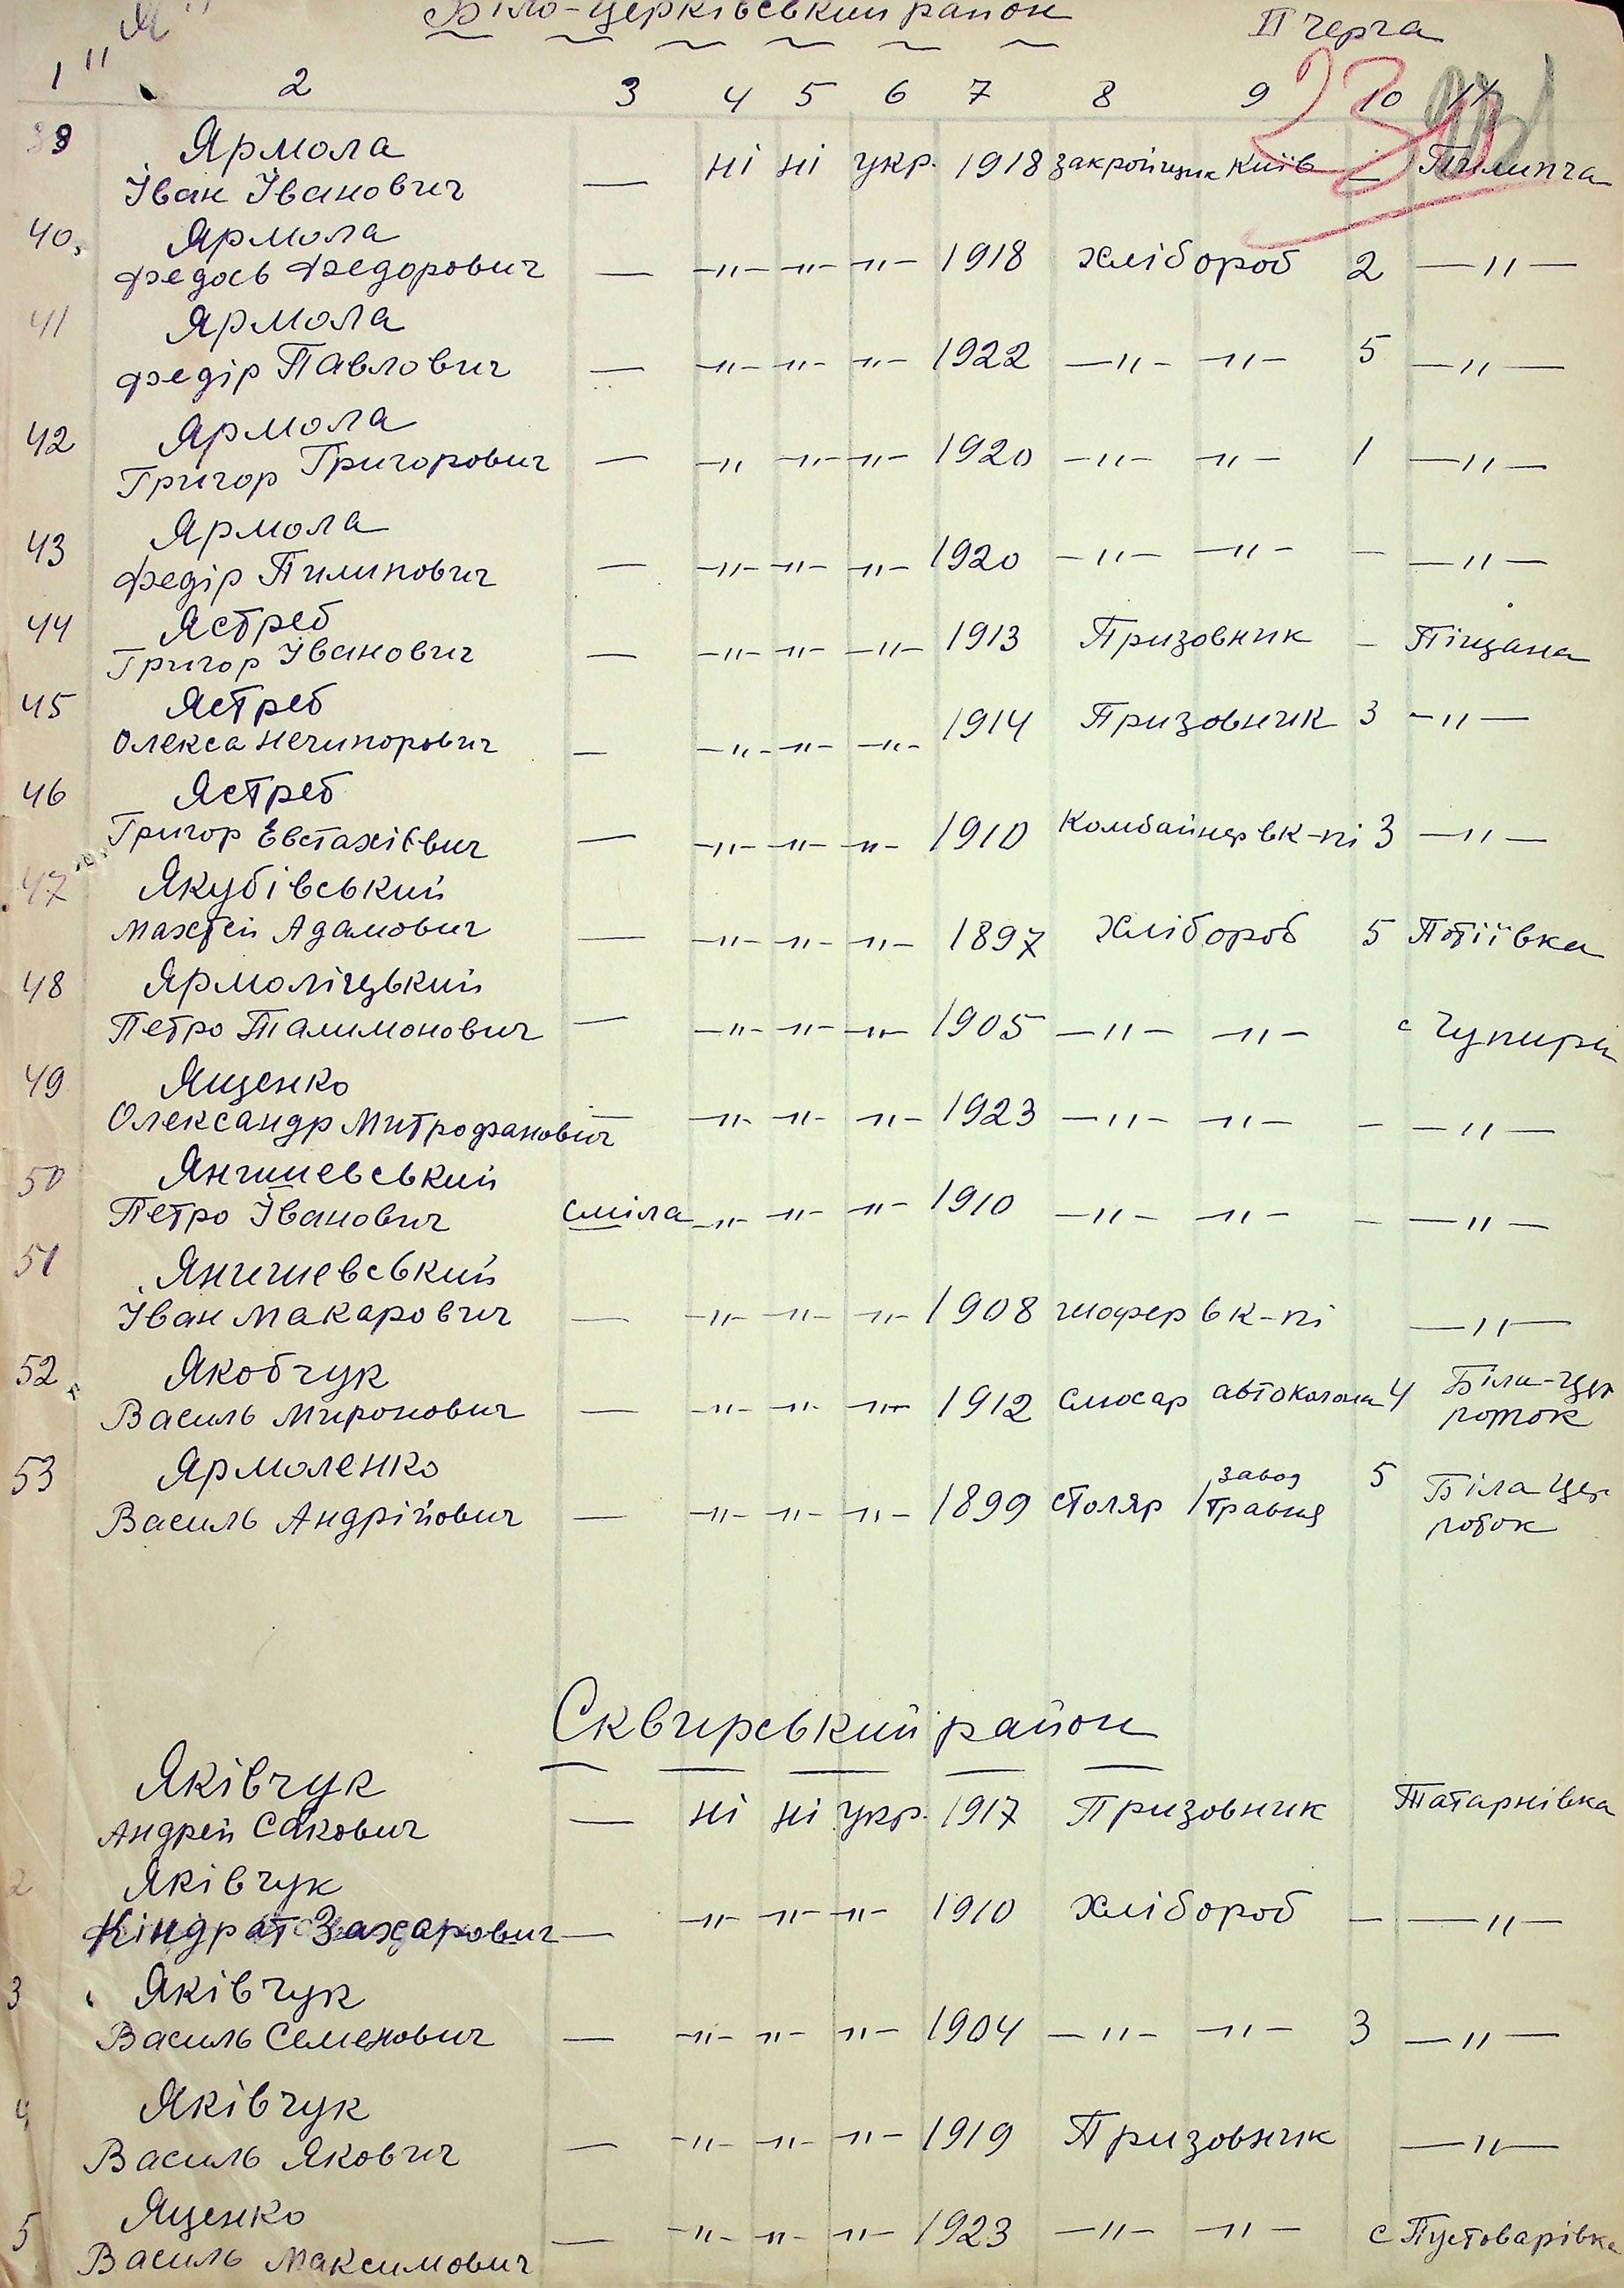 "Я" Біло-Церківський район II черга
1 2 3 4 5 6 7 8 9 10 11
39 Ярмола
Іван Іванович — ні ні укр. 1918 закройщик Київ — Пилипча
40. Ярмола
Федось Федорович — —"— —"— —"— 1918 хлібороб 2 —"—
41 Ярмола
Федір Павлович — —"— —"— —"— 1922 —"— —"— 5 —"—
42 Ярмола
Григор Григорович — —"— —"— —"— 1920 —"— —"— 1 —"—
43 Ярмола
Федір Пилипович — —"— —"— —"— 1920 —"— —"— — —"—
44 Ястреб
Григор Іванович — —"— —"— —"— 1913 Призовник — Піщана
45 Ястреб
Олекса Нечипорович — —"— —"— —"— 1914 Призовник 3 —"—
46 Ястреб
Григор Євстахієвич — —"— —"— —"— 1910 Комбайнер в к-пі 3 —"—
47 Якубівський
Махтей Адамович — —"— —"— —"— 1897 Хлібороб 5 Потіївка
48 Ярмоліцький
Петро Талимонович — —"— —"— —"— 1905 —"— —"— с Чупири
49 Ященко
Олександр Митрофанович — —"— —"— —"— 1923 —"— —"— — —"—
50 Янчишевський
Петро Іванович Сміла —"— —"— —"— 1910 —"— —"— — —"—
51 Янчишевський
Іван Макарович — —"— —"— —"— 1908 шофер в к-пі —"—
52. Якобчук
Василь Миронович — —"— —"— —"— 1912 слюсар автоколона 4 Біла-Цер
роток
53 Ярмоленко
Василь Андрійович — —"— —"— —"— 1899 столяр завод 1 травня 5 Біла Цер
роток
Сквирський район
Яківчук
Андрей Сакович — ні ні укр. 1917 Призовник Татарнівка
2 Яківчук
Кіндрат Захарович — —"— —"— —"— 1910 хлібороб — —"—
3 Яківчук
Василь Семенович — —"— —"— —"— 1904 —"— —"— 3 —"—
4 Яківчук
Василь Якович — —"— —"— —"— 1919 Призовник —"—
5 Яценко
Василь Максимович — —"— —"— —"— 1923 —"— —"— с Пустоварівка